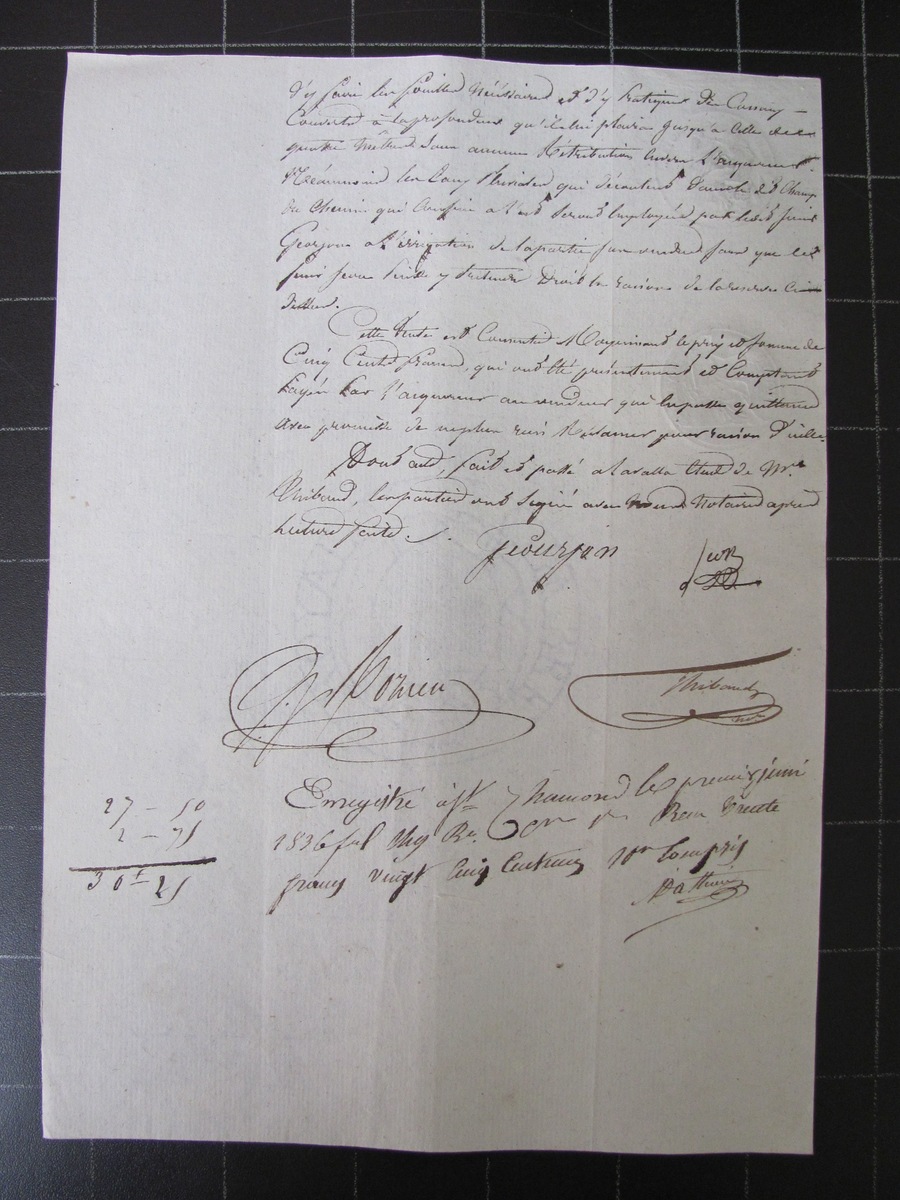 d'y faire les fouilles nécessaires et d'y pratiquer des canaux
couverts à la profondeur qu'il lui plaira jusqu'à celle de
quatre mètres sans aucune rétribution envers l'acquéreur.
Néanmoins les eaux pluviales qui découlent dudit Champ
du chemin qui confine à l'est seront employées par ledit sieur
Georjon à l'irrigation de la partie vendue sans que le
sieur y prétendre Droit en raison de la réserve ci
dessus.
Cette vente est consentie Moyennant le prix et somme de
Cinq Cents francs, qui ont été présentement et comptant
payés par l'acquéreur au vendeur qui en passe quittance
avec promesse de ne plus rien réclamer pour raison d'icelle.
Dont acte, fait et passé à Lavalla Étude de Mre
Thibaud, les parties ont signé avec nous Notaires après
lecture faite.
georjon
Thibaud
27 - 50
2 - 75
30 f 25
Enregistré à St Chamond le premier juin
1836 fol Reçu trente
francs vingt cinq centimes 10e compris